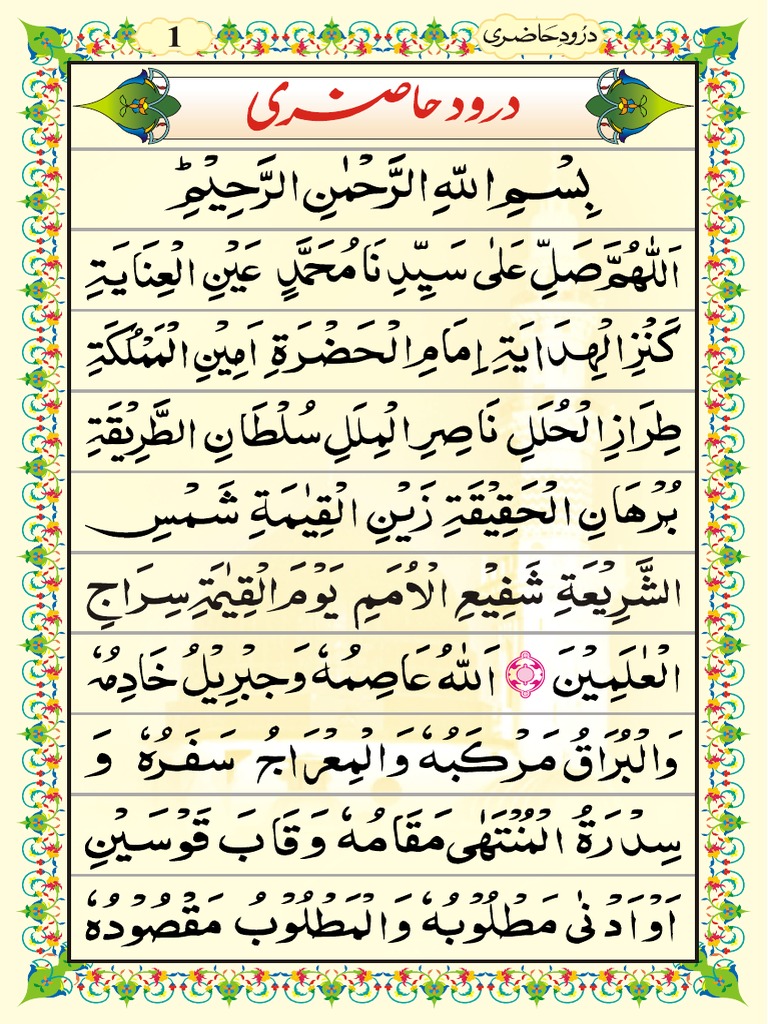 درُود حَاضری
1
درود حاضری
بِسْمِ اللّٰهِ الرَّحْمٰنِ الرَّحِيْمِ
اَللّٰهُمَّ صَلِّ عَلٰى سَيِّدِنَا مُحَمَّدٍ عَيْنِ الْعِنَايَةِ
كَنْزِ الْهِدَايَةِ اِمَامِ الْحَضْرَةِ اَمِيْنِ الْمَمْلُكَةِ
طِرَازِ الْحُلَلِ نَاصِرِ الْمِلَلِ سُلْطَانِ الطَّرِيْقَةِ
بُرْهَانِ الْحَقِيْقَةِ زَيْنِ الْقِيٰمَةِ شَمْسِ
الشَّرِيْعَةِ شَفِيْعِ الْاُمَمِ يَوْمَ الْقِيٰمَةِ سِرَاجِ
الْعٰلَمِيْنَ اَللّٰهُ عَاصِمُهٗ وَجِبْرِيْلُ خَادِمُهٗ
وَالْبُرَاقُ مَرْكَبُهٗ وَالْمِعْرَاجُ سَفَرُهٗ وَ
سِدْرَةُ الْمُنْتَهٰى مَقَامُهٗ وَقَابَ قَوْسَيْنِ
اَوْاَدْنٰى مَطْلُوْبُهٗ وَالْمَطْلُوْبُ مَقْصُوْدُهٗ